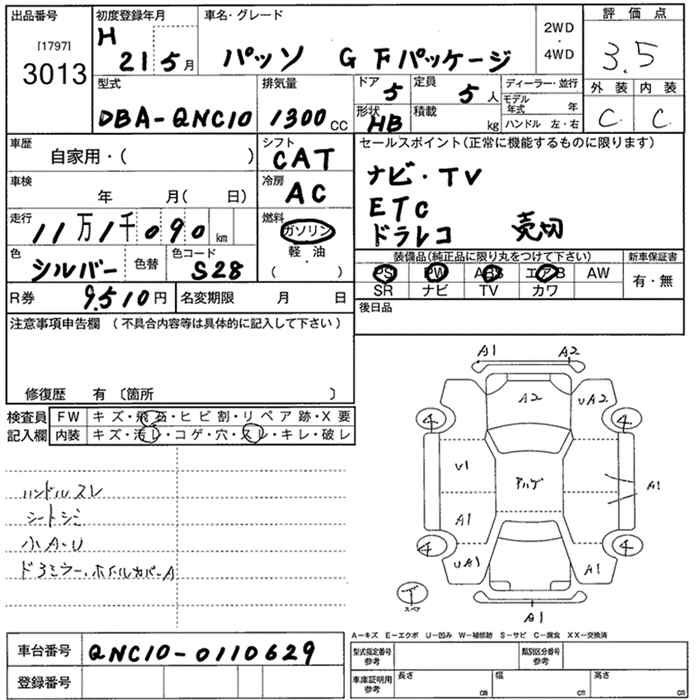 出品番号
[1797]
3013
初度登録年月
H
21 5月
車名・グレード
パッソ G Fパッケージ
2WD
・
4WD
評価点
3.5
外装 内装
C C
型式
DBA-QNC10
排気量
1300 CC
ドア 5
定員 5 人
形状 HB
積載 kg
ディーラー・並行
モデル年式 年
ハンドル 左・右
車歴
自家用・( )
シフト
CAT
車検
年 月( 日)
冷房
AC
走行
11万1千090 km
燃料
ガソリン
軽・油
( )
色
シルバー
色替
色コード
S28
R券 9,510円
名変期限 月 日
セールスポイント(正常に機能するものに限ります)
ナビ・TV
ETC
ドラレコ 売切
装備品(純正品に限り丸をつけて下さい)
新車保証書
PS PW ABS エアB AW
SR ナビ TV カワ
有・無
後日品
注意事項申告欄 (不具合内容等は具体的に記入して下さい)
修復歴 有 〔箇所 〕
検査員
記入欄
FW キズ・飛石・ヒビ割・リペア跡・X要
内装 キズ・汚レ・コゲ・穴・スレ・キレ・破レ
ハンドルスレ
シートシミ
小A・U
ドアミラー・ホイールカバーA
A1 A2
A2 UA2
4 4
U1
アハゲ
A1
A1
4 4
UA1 A1
スペア
A1
A-キズ E-エクボ U-凹み W-補修跡 S-サビ C-腐食 XX-交換済
車台番号 QNC10-0110629
登録番号
型式指定番号
参考
類別区分番号
参考
車庫証明用
参考
長さ cm
幅 cm
高さ cm